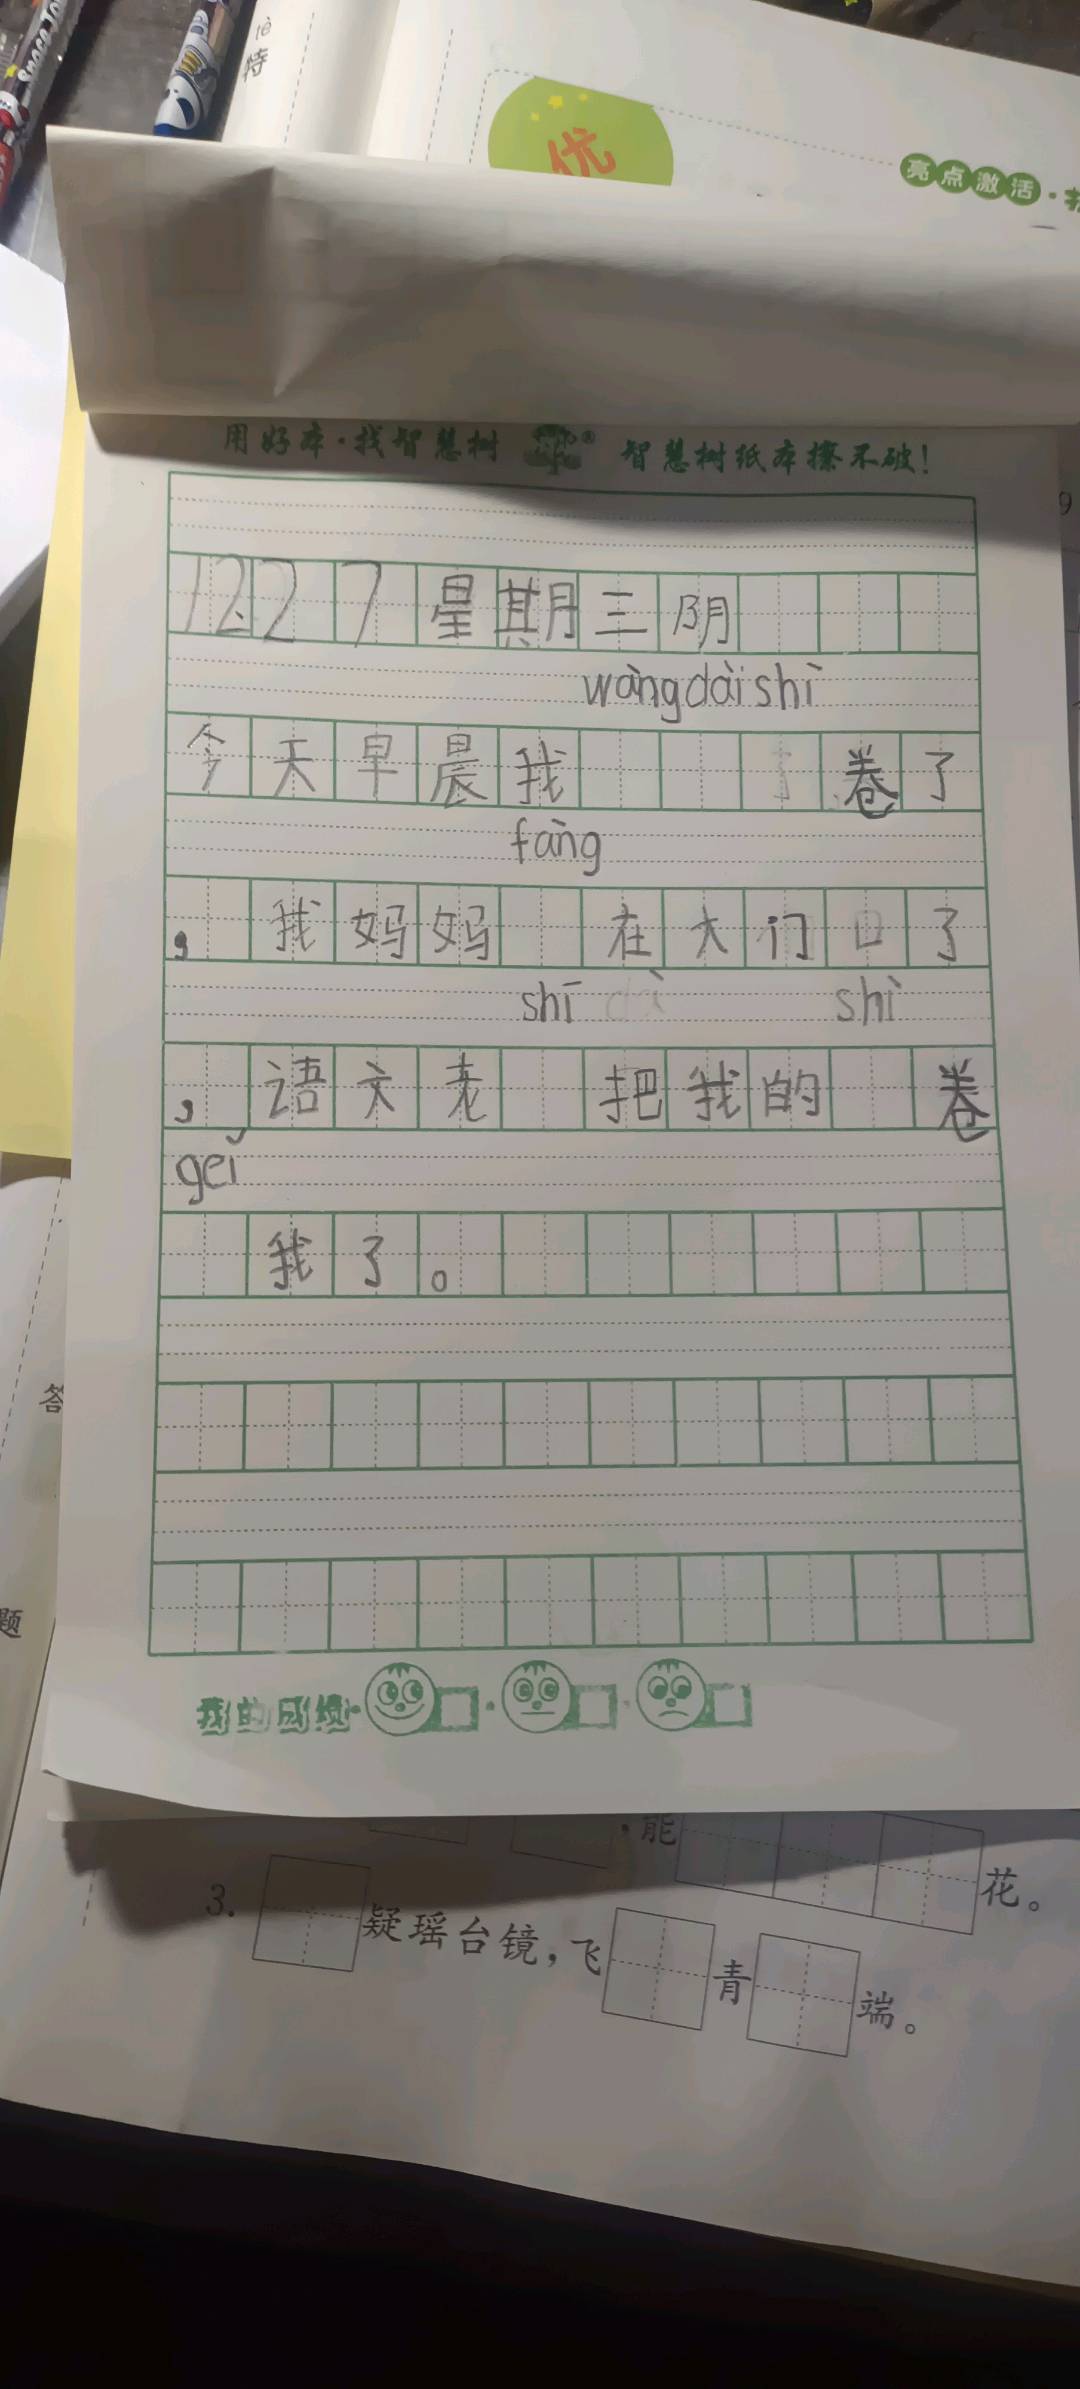 tè
特
优
亮点激活·
用好本·找智慧树 ® 智慧树纸本擦不破！
12 27 星期三阴
wàng dài shì
今天早晨我 卷了
fàng
，我妈妈 在大门口了
shī shì
，语文老 把我的 卷
gěi
我了。
我的成绩·
答
题
能 花。
3. 疑瑶台镜，飞 青 端。